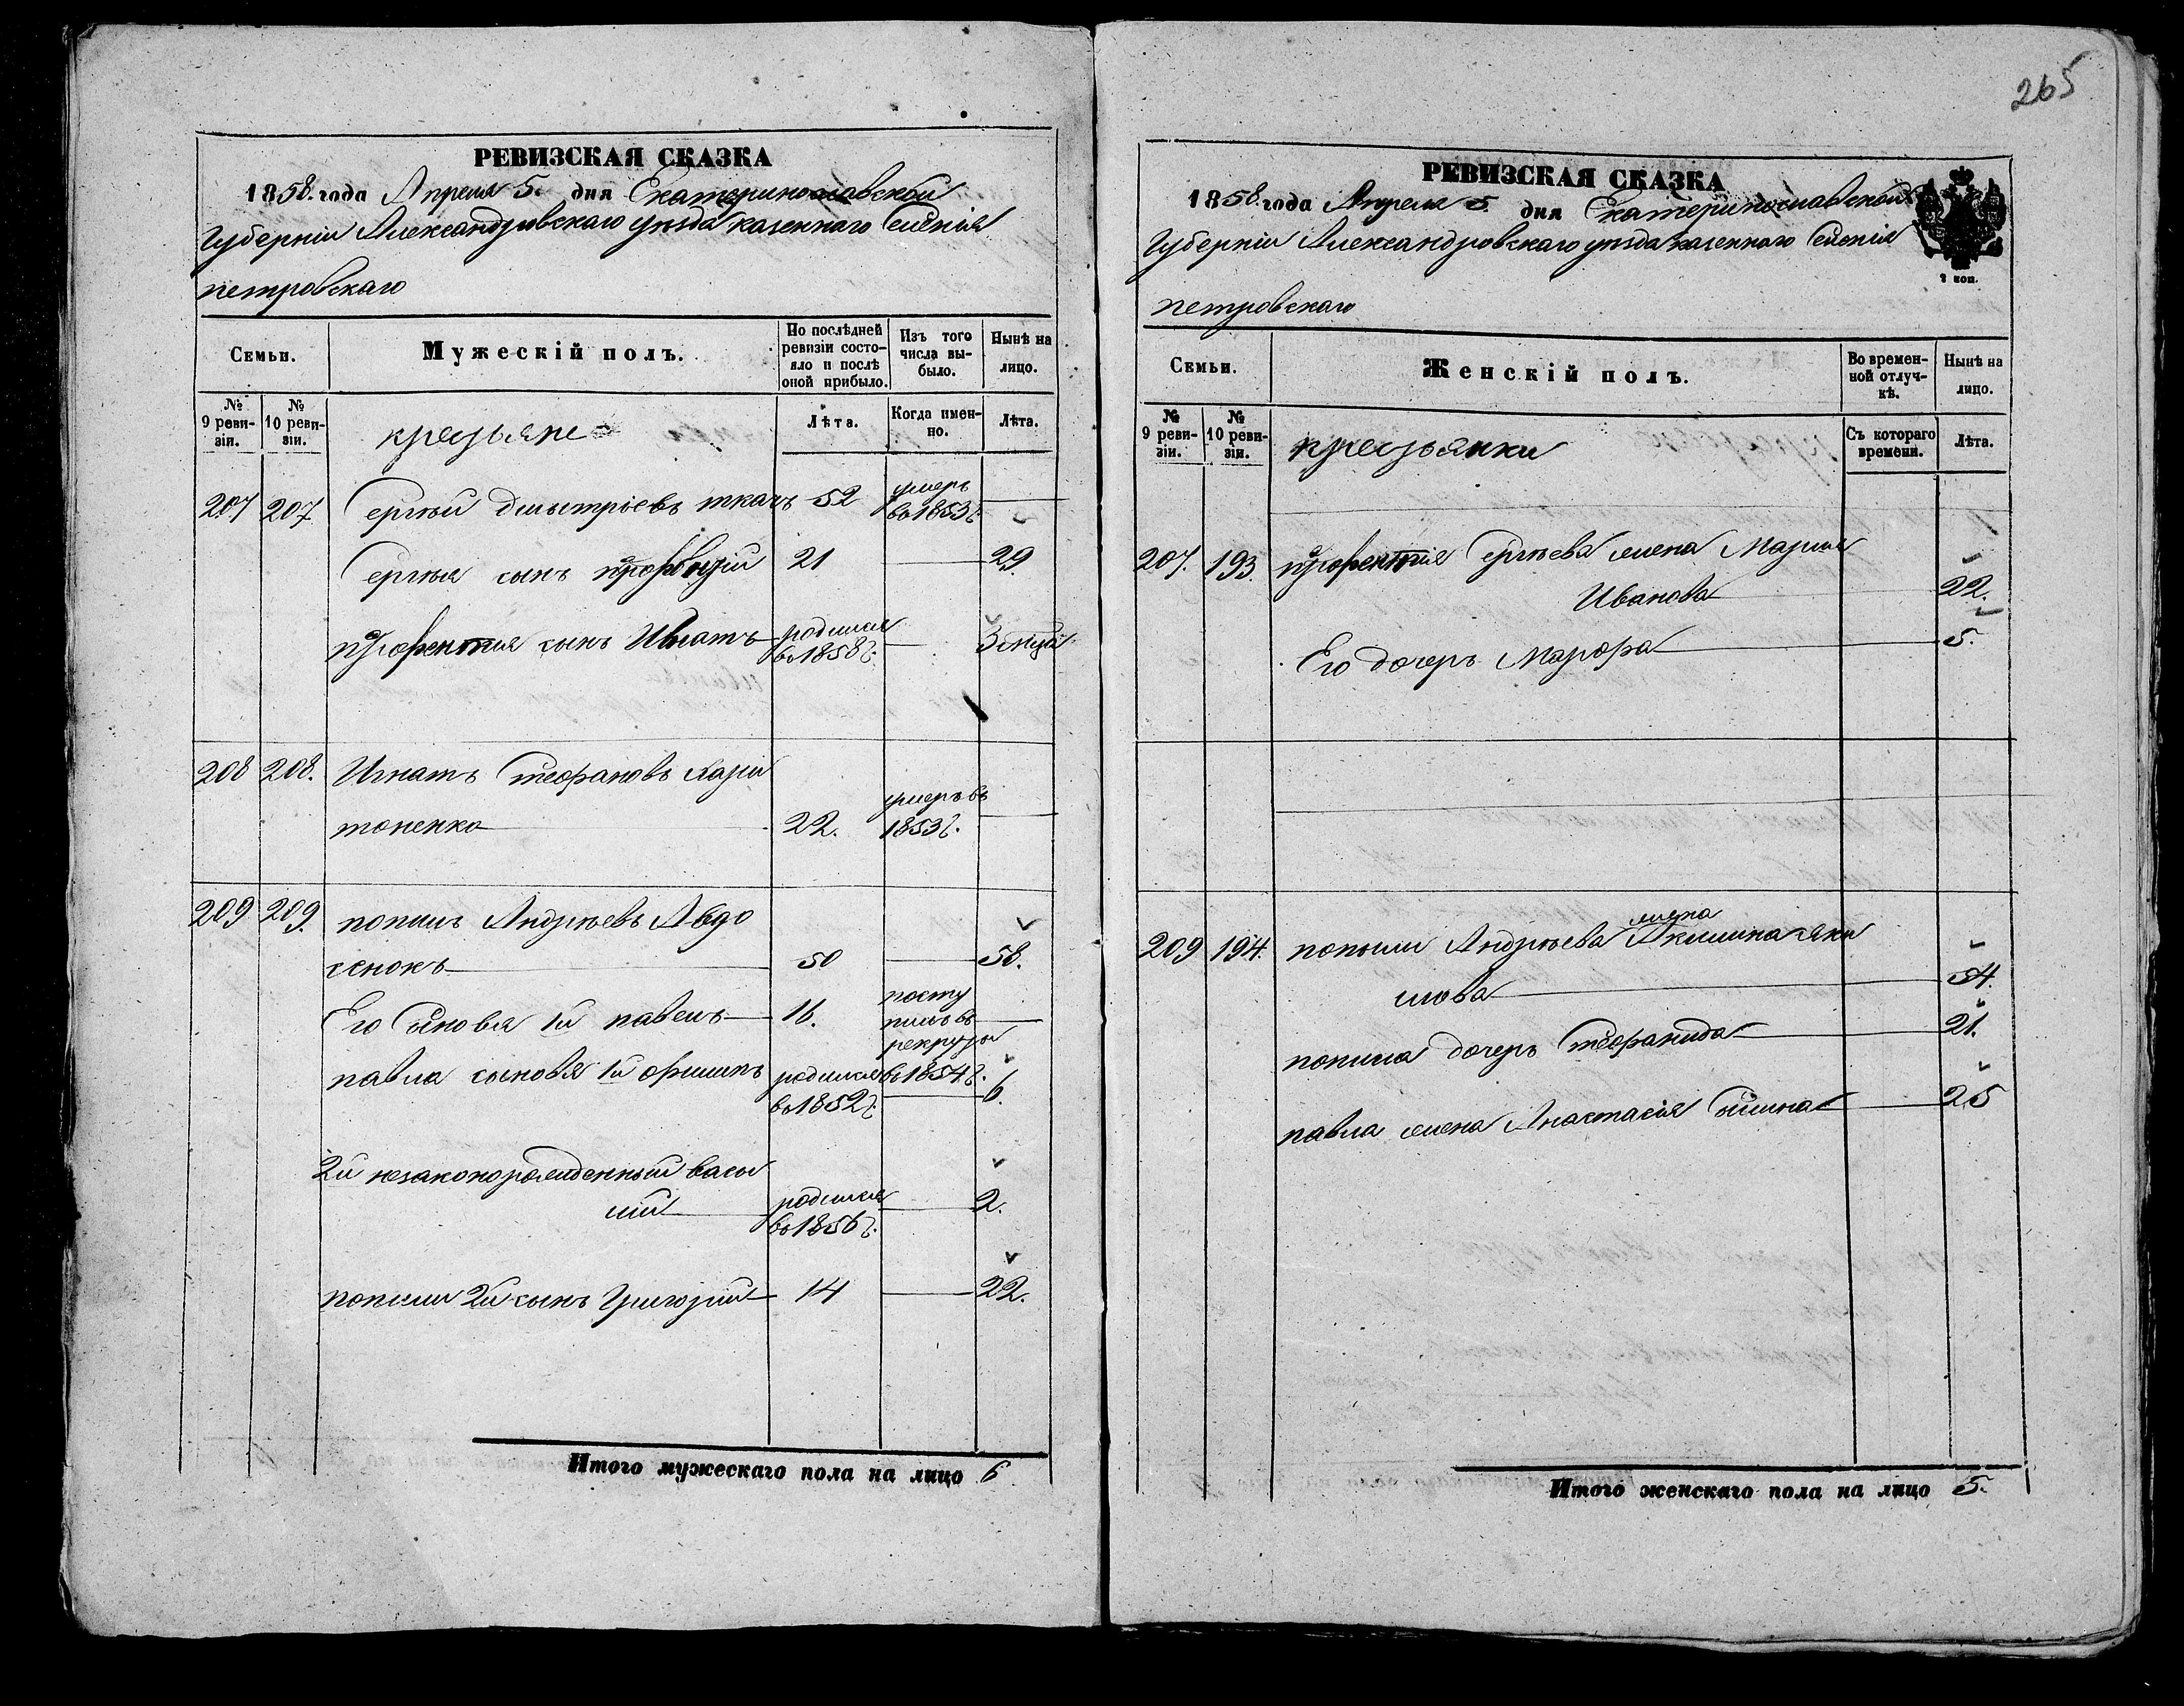 265
РЕВИЗСКАЯ СКАЗКА
1858. года Апреля 5. дня Екатеринославской
Губерніи Александровскаго уѣзда казеннаго Селенія
петровскаго
Семьи.
Мужескій полъ.
По послѣдней ревизіи состояло и послѣ оной прибыло.
Изъ того числа выбыло.
Нынѣ на лицо.
№ 9 ревизіи.
№ 10 ревизіи.
крестьяне
Лѣта.
Когда именно.
Лѣта.
207 207 Сергѣй дмытріевъ ткачъ 52 умеръ
въ 1853 г.
Сергѣя сынъ 21 29.
сынъ Игнатъ родился 3 мѣсяца
въ 1858 г.
208 208. Игнатъ Феофановъ Хари
тоненко 22. умеръ въ
1853 г.
209 209. попыль Андрѣевъ Авдо
сенокъ 50 58.
Его Сыновья 1й павелъ 16. посту
пилъ въ
рекруты
павла сыновья 1й родился въ 1854 г.
въ 1852 г. 6.
2й незаконорожденный васы
лій родился 2.
въ 1856 г.
попыли 2й сынъ Григорій 14 22.
Итого мужескаго пола на лицо 6
РЕВИЗСКАЯ СКАЗКА
1858. года Апреля 5. дня Екатеринославской
Губерніи Александровскаго уѣзда казеннаго Селенія
2 коп.
петровскаго
Семьи.
Женскій полъ.
Во временной отлучкѣ.
Нынѣ на лицо.
№ 9 ревизіи.
№ 10 ревизіи.
крестьянки
Съ котораго времени.
Лѣта.
207. 193. Сергѣева жена Марія
Иванова 22.
Его дочерь Марфа 5.
209 194. попыли Андрѣева жена Акилина Яки
мова 54.
попила дочерь Феофанида 21.
павла жена Анастасія 25
Итого женскаго пола на лицо 5.